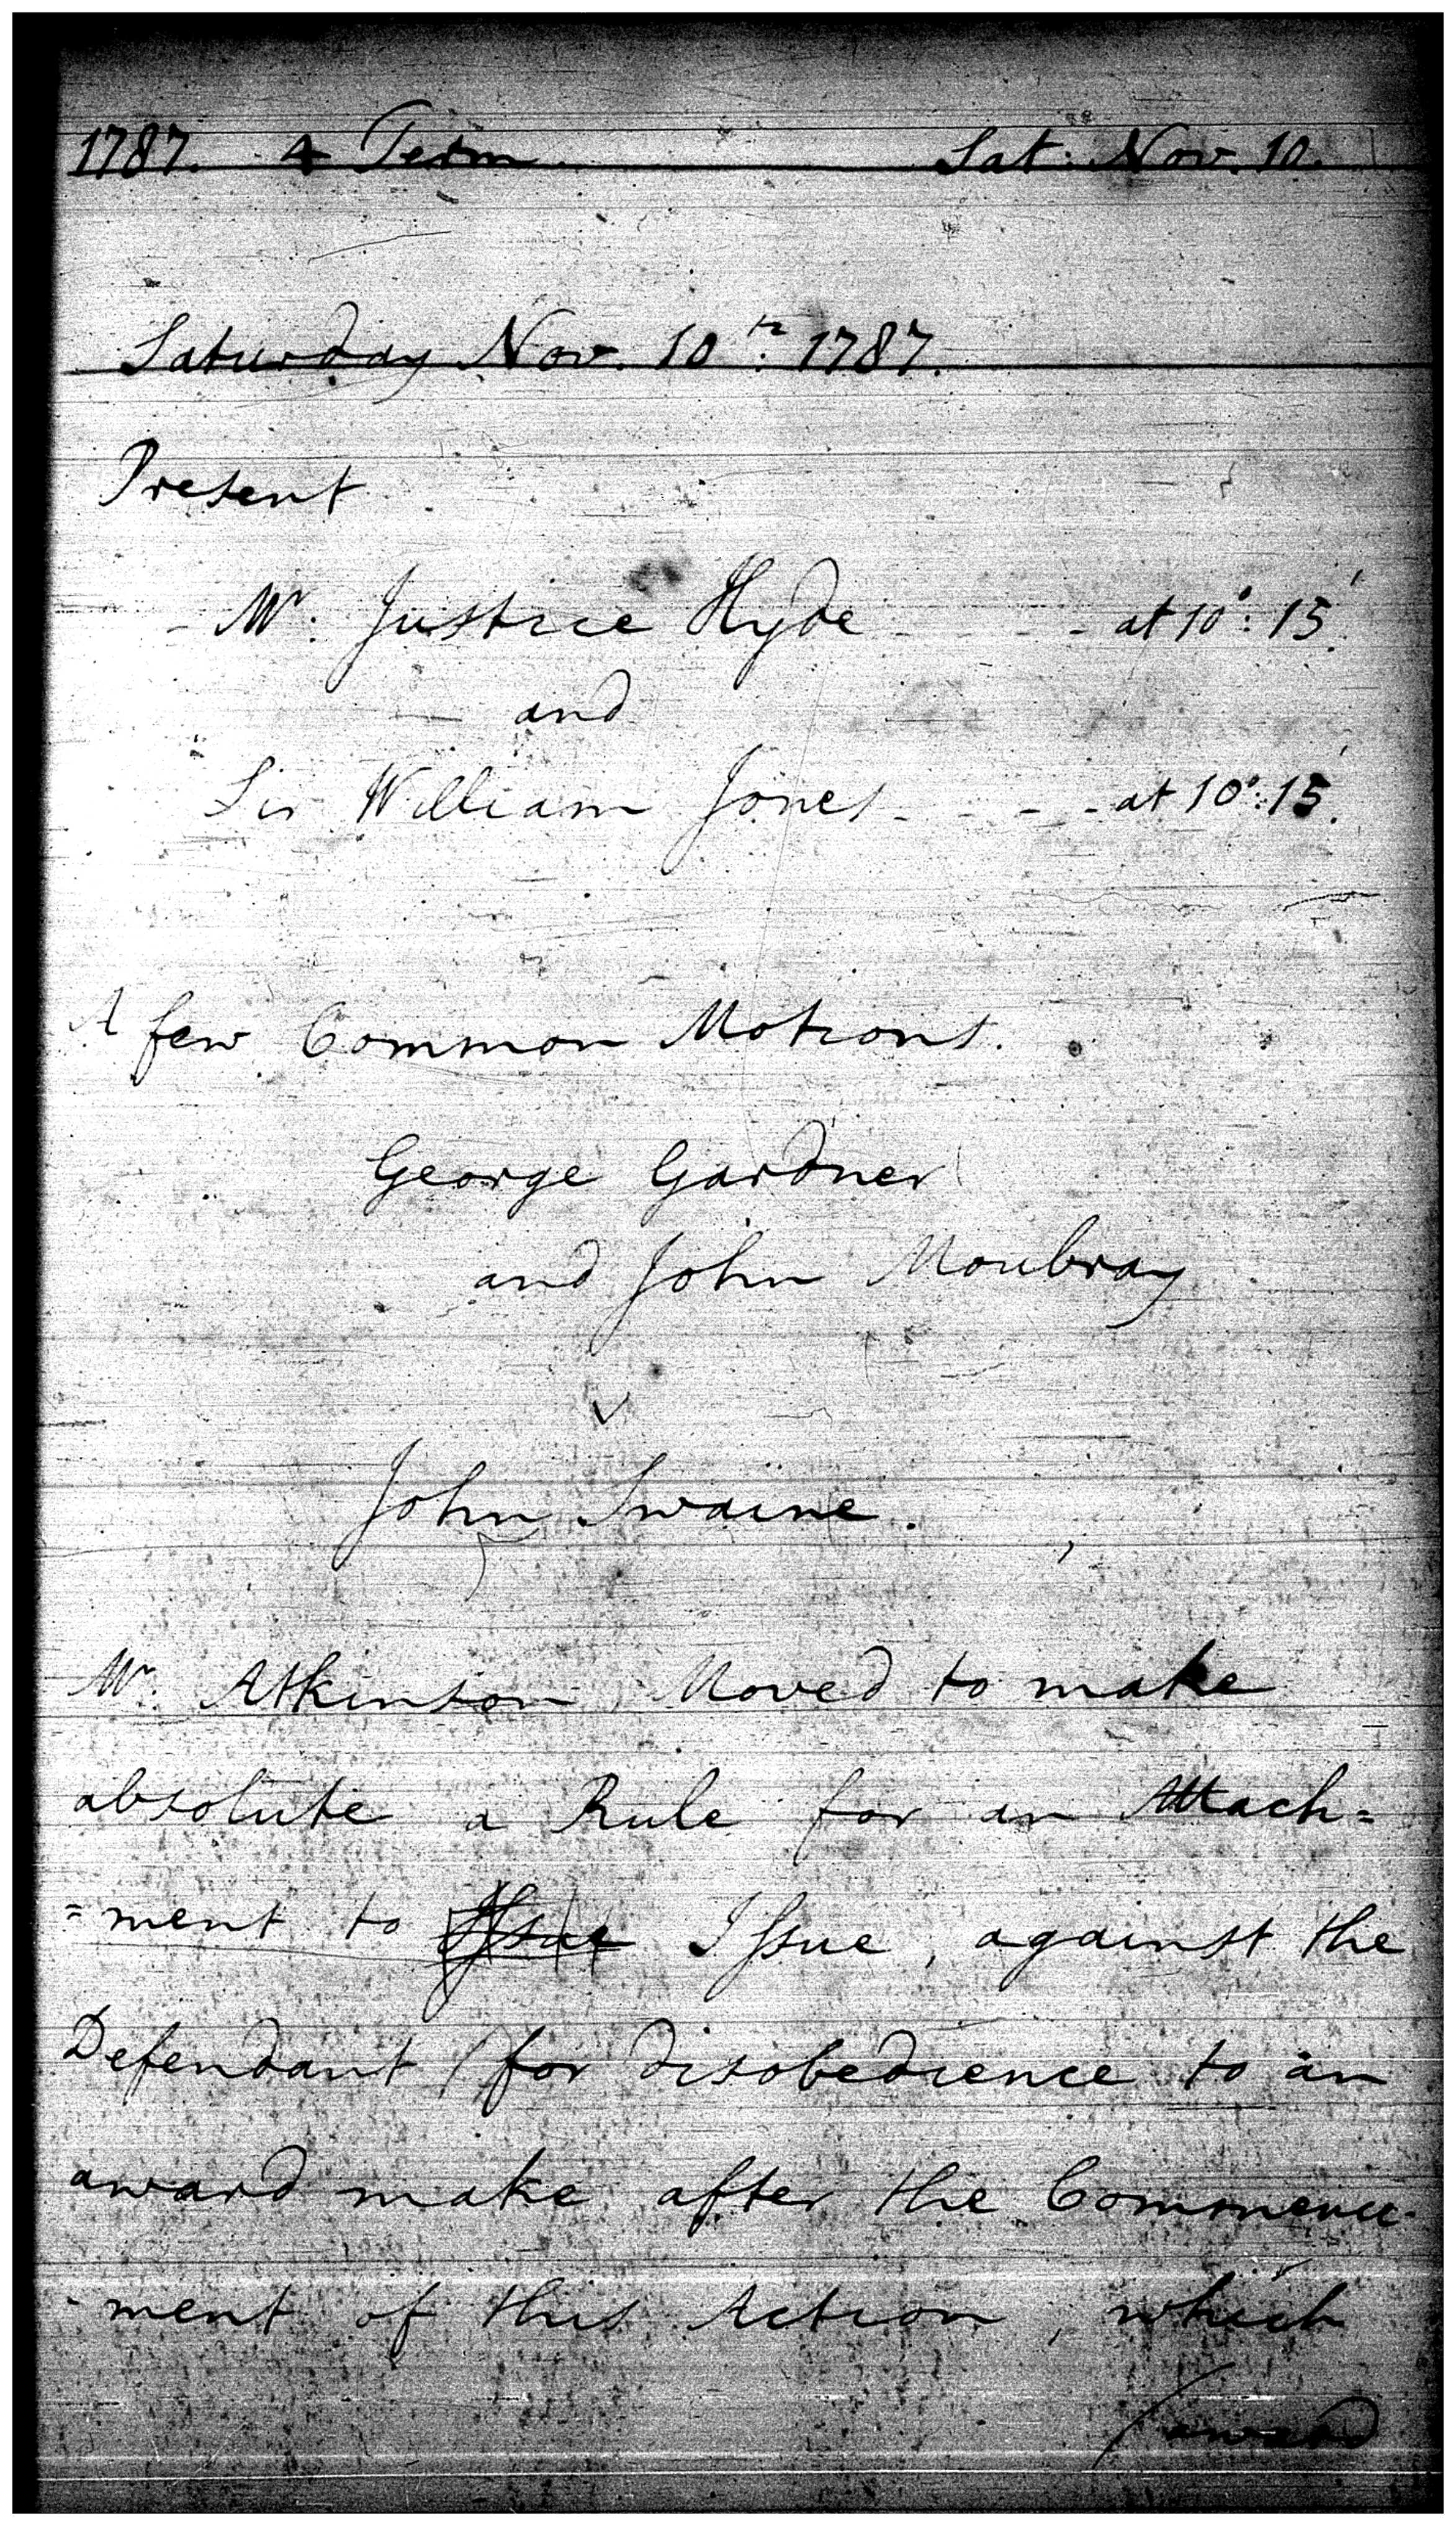 1787. 4 Term. Sat: Nov. 10.
Saturday Nov. 10th. 1787.
Present
Mr. Justice Hyde - - - - at 10°: 15'.
and
Sir William Jones - - - - at 10°: 15'.
A few Common Motions.
George Gardner
and John Moubray
v
John Swaine.
Mr. Atkinson Moved to make
absolute a Rule for an Attach=
=ment to Issue Issue, against the
Defendant (for disobedience to an
award make after the Commence-
-ment of this Action, which
/award